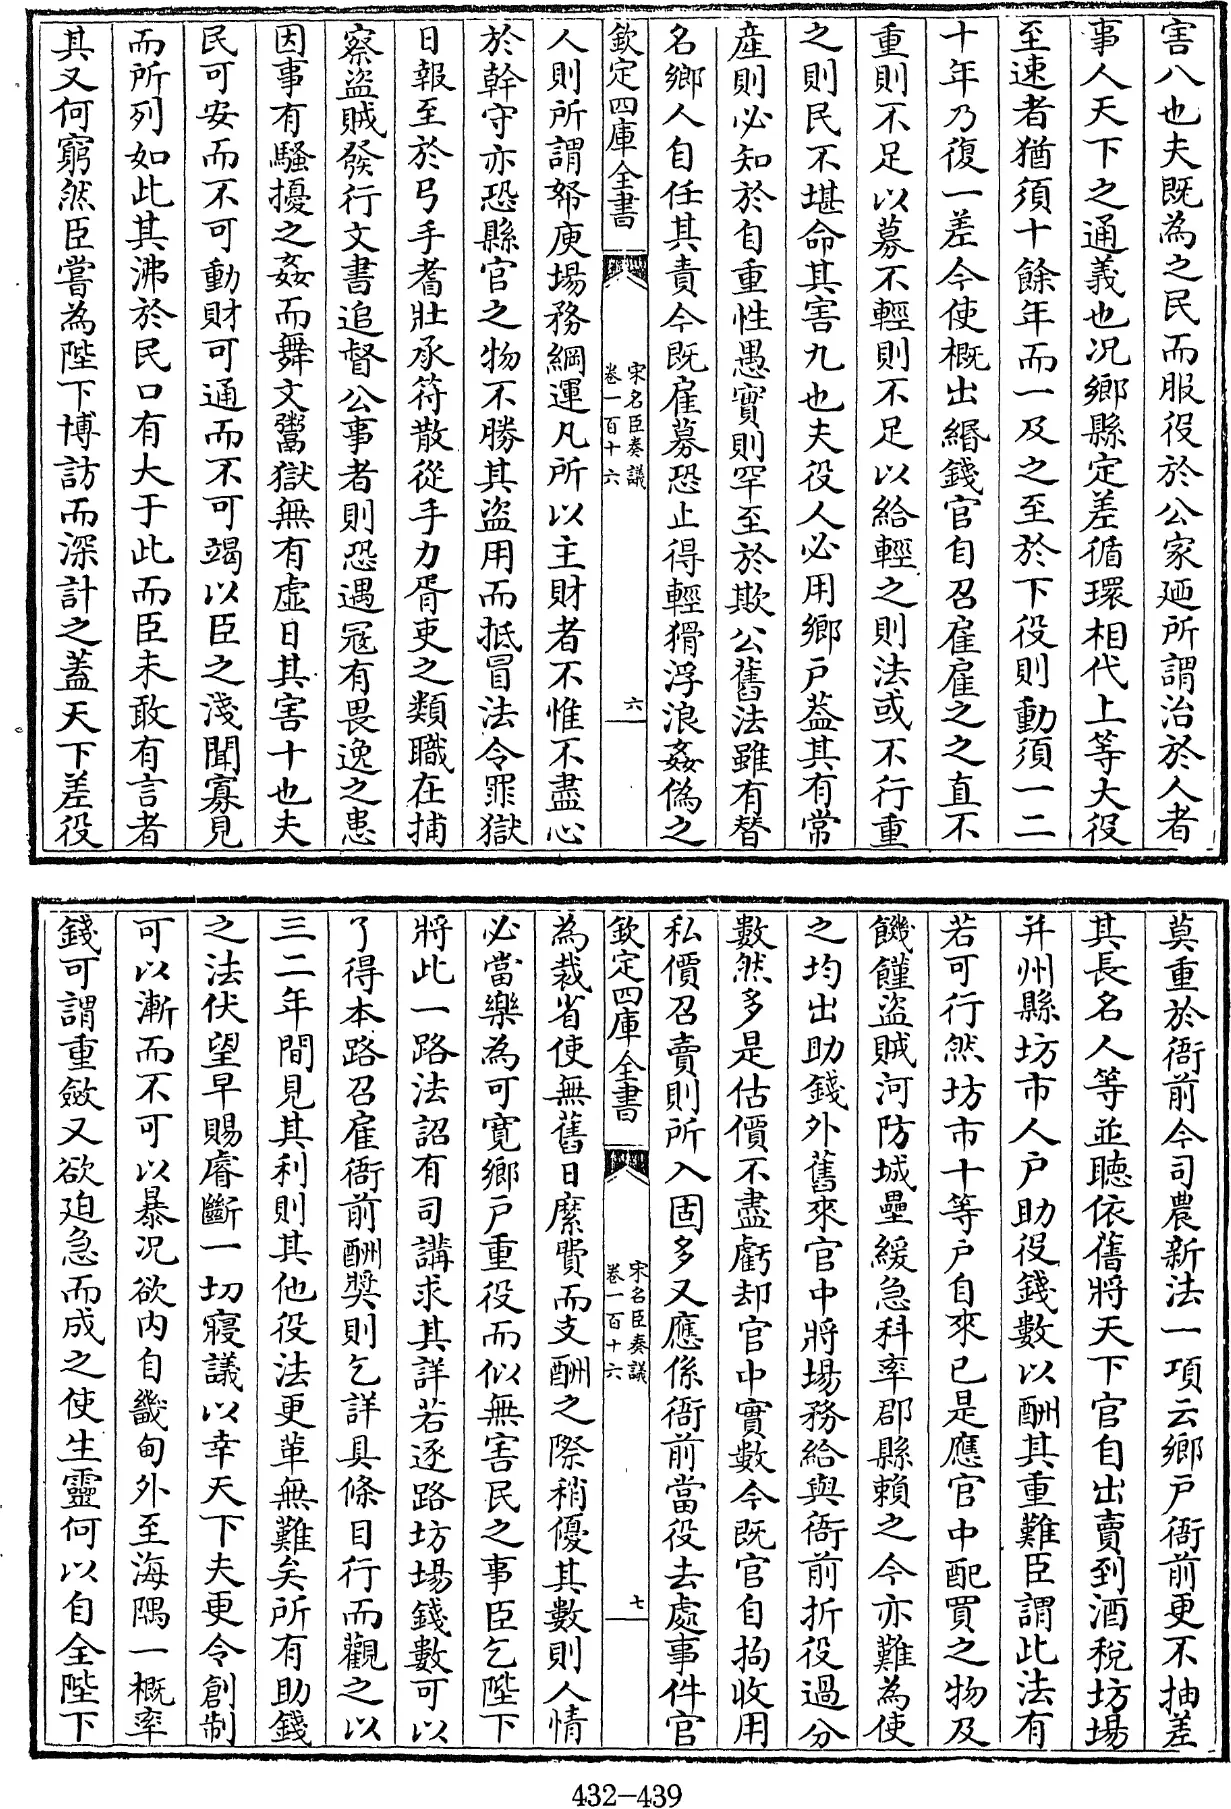 害八也夫既為之民而服役於公家廼所謂治於人者
事人天下之通義也况鄉縣定差循環相代上等大役
至速者猶須十餘年而一及之至於下役則動須一二
十年乃復一差今使概出緡錢官自召雇雇之之直不
重則不足以募不輕則不足以給輕之則法或不行重
之則民不堪命其害九也夫役人必用鄉戶葢其有常
産則必知於自重性愚實則罕至於欺公舊法雖有替
名鄉人自任其責今既雇募恐止得輕猾浮浪姦偽之
欽定四庫全書
宋名臣奏議
卷一百十六
六
人則所謂帑庾場務綱運凡所以主財者不惟不盡心
於幹守亦恐縣官之物不勝其盜用而抵冒法令罪獄
日報至於弓手耆壯承符散從手力胥吏之類職在捕
察盜賊發行文書追督公事者則恐遇冦有畏逸之患
因事有騷擾之姦而舞文鬻獄無有虛日其害十也夫
民可安而不可動財可通而不可竭以臣之淺聞寡見
而所列如此其沸於民口有大于此而臣未敢有言者
其又何窮然臣嘗為陛下博訪而深計之蓋天下差役
莫重於衙前今司農新法一項云鄉戶衙前更不抽差
其長名人等並聽依舊將天下官自出賣到酒稅坊場
并州縣坊市人户助役錢數以酬其重難臣謂此法有
若可行然坊市十等户自來已是應官中配買之物及
饑饉盜賊河防城壘緩急科率郡縣賴之今亦難為使
之均出助錢外舊來官中將場務給與衙前折役過分
數然多是估價不盡虧却官中實數今既官自拘收用
私價召賣則所入固多又應係衙前當役去處事件官
欽定四庫全書
宋名臣奏議
卷一百十六
七
為裁省使無舊日縻費而支酬之際稍優其數則人情
必當樂為可寛鄉戶重役而似無害民之事臣乞陛下
將此一路法詔有司講求其詳若逐路坊場錢數可以
了得本路召雇衙前酬奬則乞詳具條目行而觀之以
三二年間見其利則其他役法更革無難矣所有助錢
之法伏望早賜睿斷一切寢議以幸天下夫更令創制
可以漸而不可以暴况欲内自畿甸外至海隅一概率
錢可謂重斂又欲迫急而成之使生靈何以自全陛下
432-439